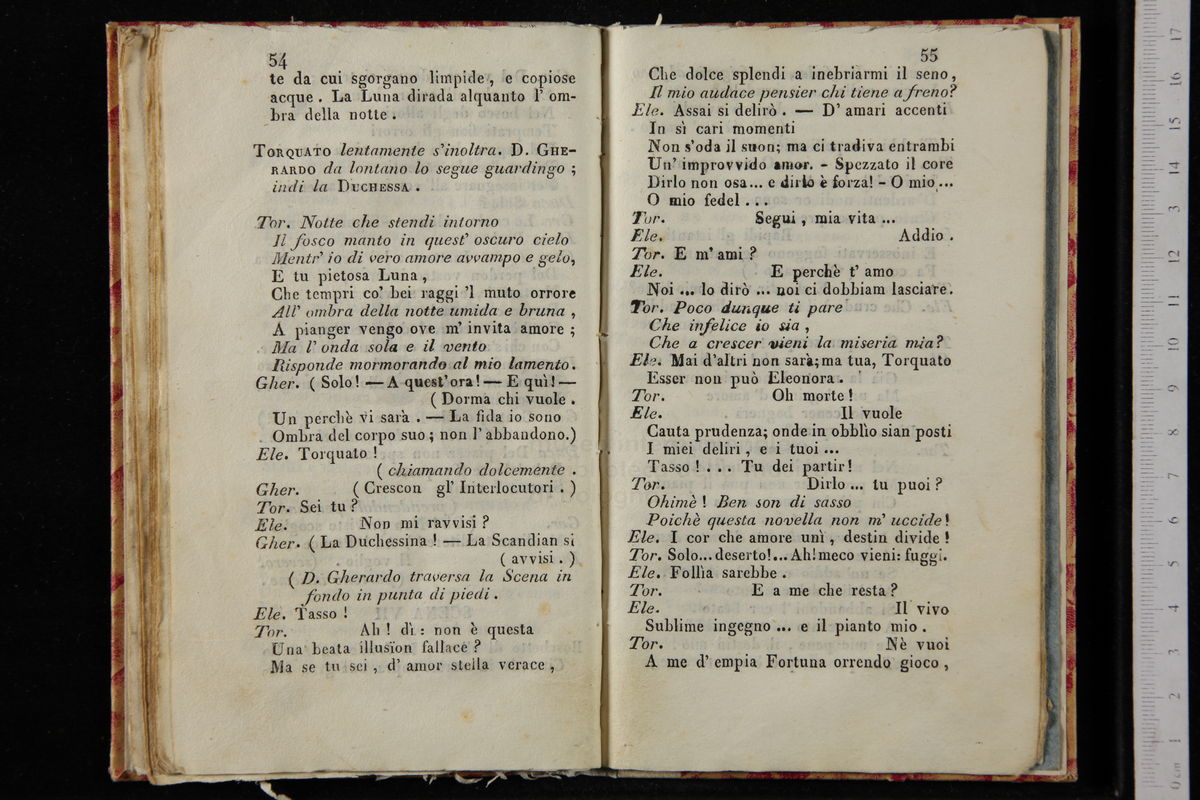 54
te da cui sgorgano limpide, e copiose
acque. La Luna dirada alquanto l' om-
bra della notte.
TORQUATO lentamente s'inoltra. D. GHE-
RARDO da lontano lo segue guardingo;
indi la DUCHESSA.
Tor. Notte che stendi intorno
Il fosco manto in quest' oscuro cielo
Mentr' io di vero amore avvampo e gelo,
E tu pietosa Luna,
Che tempri co' bei raggi 'l muto orrore
All' ombra della notte umida e bruna,
A pianger vengo ove m' invita amore;
Ma l' onda sola e il vento
Risponde mormorando al mio lamento.
Gher. (Solo! — A quest'ora! — E quì! —
(Dorma chi vuole.
Un perchè vi sarà. — La fida io sono
Ombra del corpo suo; non l' abbandono.)
Ele. Torquato!
(chiamando dolcemente.
Gher. (Crescon gl' Interlocutori.)
Tor. Sei tu?
Ele. Non mi ravvisi?
Gher. (La Duchessina! — La Scandian si
(avvisi.)
(D. Gherardo traversa la Scena in
fondo in punta di piedi.
Ele. Tasso!
Tor. Ah! dì: non è questa
Una beata illusïon fallace?
Ma se tu sei, d' amor stella verace,
55
Che dolce splendi a inebriarmi il seno,
Il mio audace pensier chi tiene a freno?
Ele. Assai si delirò. — D' amari accenti
In sì cari momenti
Non s'oda il suon; ma ci tradiva entrambi
Un' improvvido amor. - Spezzato il core
Dirlo non osa... e dirlo è forza! - O mio...
O mio fedel...
Tor. Segui, mia vita...
Ele. Addio.
Tor. E m' ami?
Ele. E perchè t' amo
Noi... lo dirò... noi ci dobbiam lasciare.
Tor. Poco dunque ti pare
Che infelice io sia,
Che a crescer vieni la miseria mia?
Ele. Mai d'altri non sarà; ma tua, Torquato
Esser non può Eleonora.
Tor. Oh morte!
Ele. Il vuole
Cauta prudenza; onde in obblìo sian posti
I miei deliri, e i tuoi...
Tasso!... Tu dei partir!
Tor. Dirlo... tu puoi?
Ohimè! Ben son di sasso
Poichè questa novella non m' uccide!
Ele. I cor che amore unì, destin divide!
Tor. Solo... deserto!... Ah! meco vieni: fuggi.
Ele. Follìa sarebbe.
Tor. E a me che resta?
Ele. Il vivo
Sublime ingegno... e il pianto mio.
Tor. Nè vuoi
A me d' empia Fortuna orrendo gioco,
0 cm 1 2 3 4 5 6 7 8 9 10 11 12 13 14 15 16 17